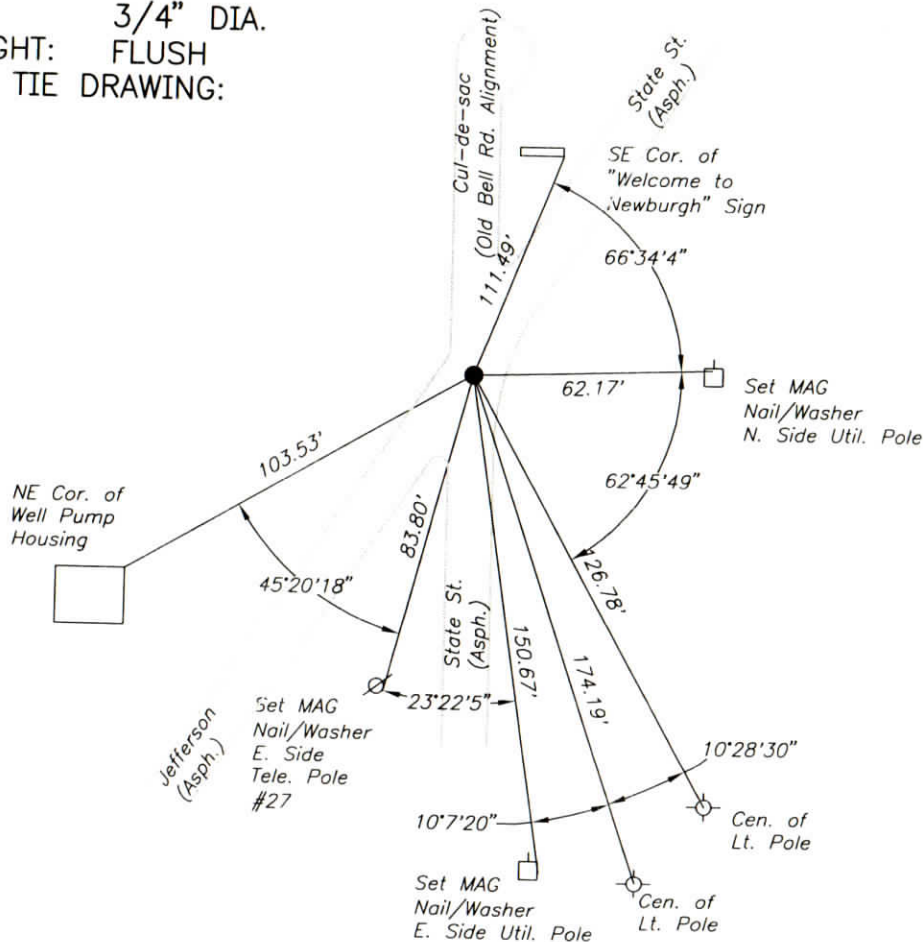 3/4" DIA.
GHT: FLUSH
TIE DRAWING:
Cul-de-sac
(Old Bell Rd. Alignment)
State St.
(Asph.)
SE Cor. of
"Welcome to
Newburgh" Sign
111.49'
66°34'4"
62.17'
Set MAG
Nail/Washer
N. Side Util. Pole
103.53'
62°45'49"
NE Cor. of
Well Pump
Housing
83.80'
45°20'18"
126.78'
State St.
(Asph.)
150.67'
174.19'
23°22'5"
Jefferson
(Asph.)
Set MAG
Nail/Washer
E. Side
Tele. Pole
#27
10°28'30"
10°7'20"
Cen. of
Lt. Pole
Set MAG
Nail/Washer
E. Side Util. Pole
Cen. of
Lt. Pole